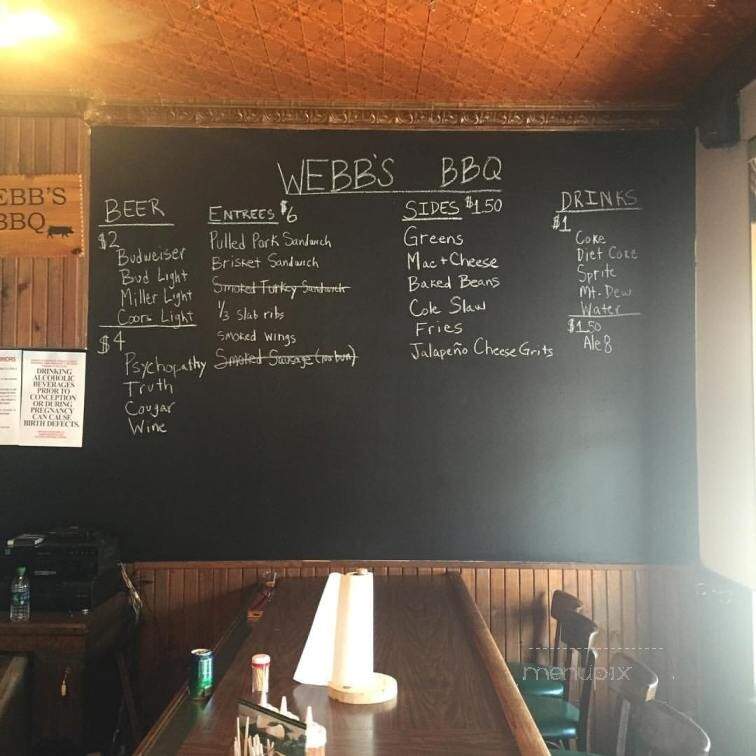 WEBB'S BBQ
EBB'S
BBQ
BEER
$2
Budweiser
Bud Light
Miller Light
Coors Light
$4
Psychopathy
Truth
Cougar
Wine
ENTREES $6
Pulled Pork Sandwich
Brisket Sandwich
Smoked Turkey Sandwich
1/3 slab ribs
smoked wings
Smoked Sausage (no bun)
SIDES $1.50
Greens
Mac + Cheese
Baked Beans
Cole Slaw
Fries
Jalapeño Cheese Grits
DRINKS
$1
Coke
Diet Coke
Sprite
Mt. Dew
Water
$1.50
Ale 8
DRINKING
ALCOHOLIC
BEVERAGES
PRIOR TO
CONCEPTION
OR DURING
PREGNANCY
CAN CAUSE
BIRTH DEFECTS.
menupix